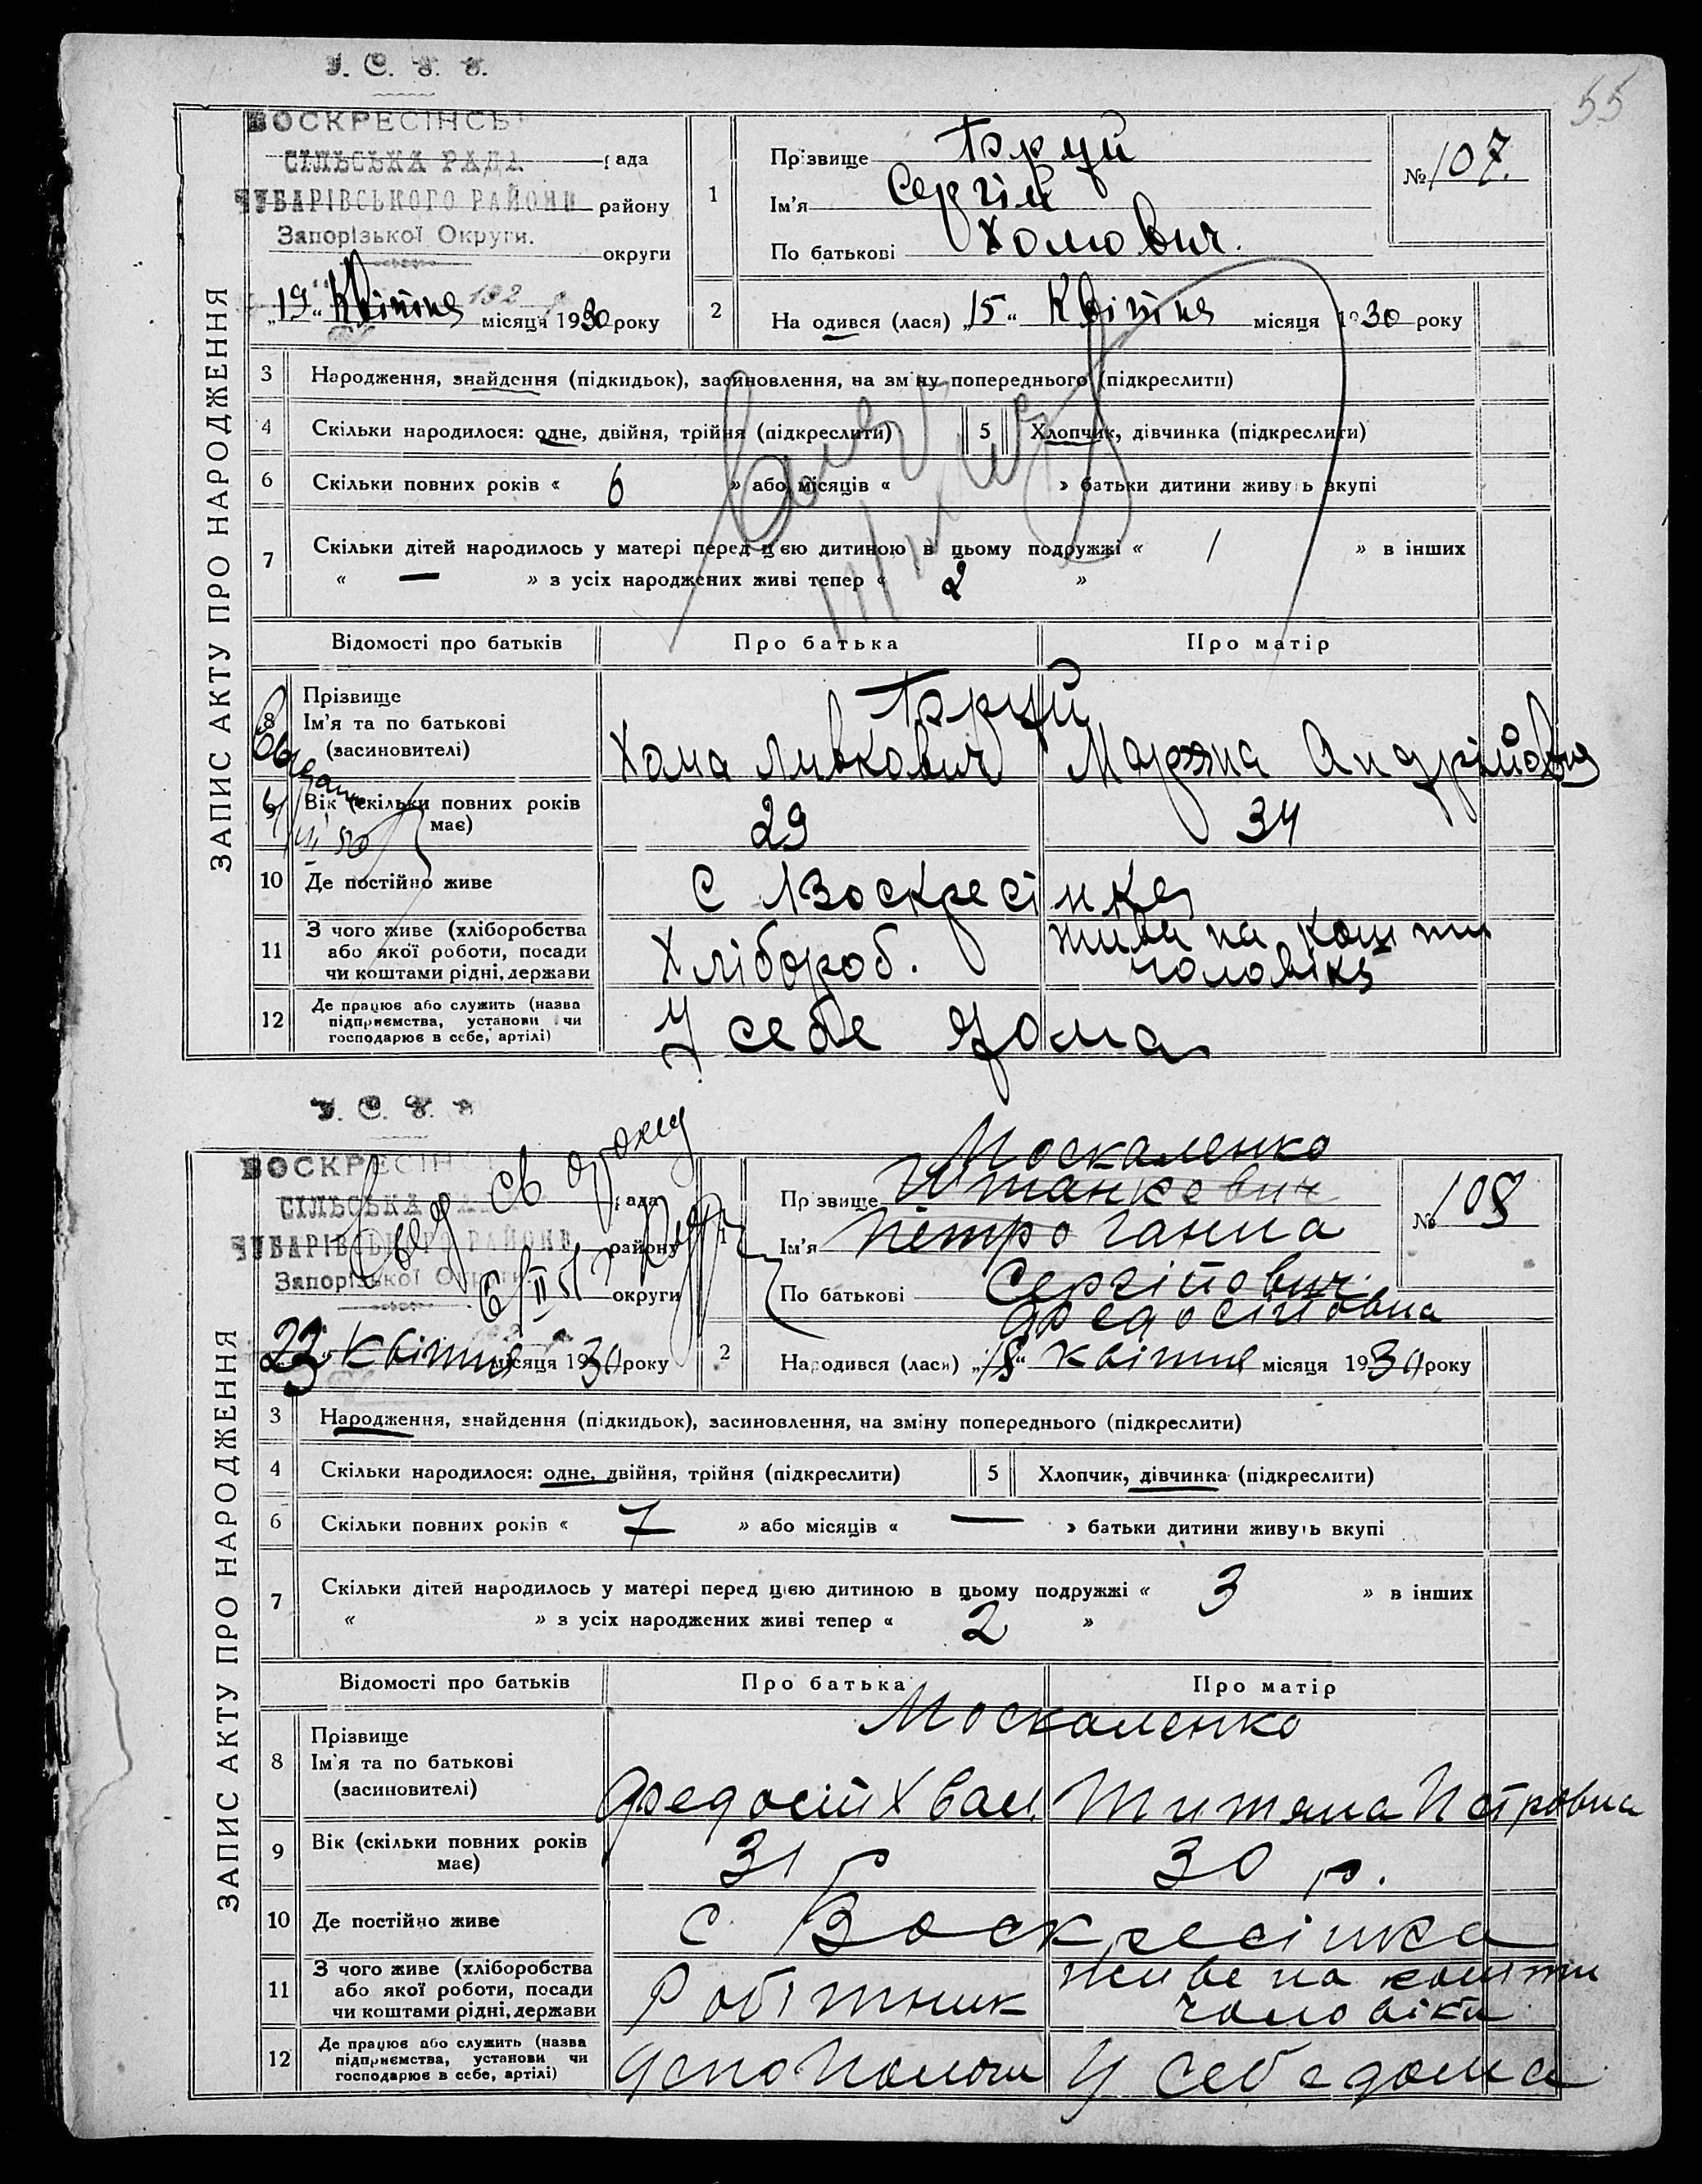 55
У. С. Р. Р.
ВОСКРЕСІНСЬ
СІЛЬСЬКА РАДА рада
ЧУБАРІВСЬКОГО РАЙОНУ району
Запорізької Округи. округи
„19“ Квітня місяця 1930 року
ЗАПИС АКТУ ПРО НАРОДЖЕННЯ
1 Прізвище
Ім'я Сергій
По батькові Хомович.
№ 107.
2 На одився (лася) „15“ Квітня місяця 1930 року
3 Народження, знайдення (підкидьок), засиновлення, на зміну попереднього (підкреслити)
4 Скільки народилося: одне, двійня, трійня (підкреслити) 5 Хлопчик, дівчинка (підкреслити)
6 Скільки повних років « 6 » або місяців « » батьки дитини живуть вкупі
7 Скільки дітей народилось у матері перед цією дитиною в цьому подружжі « 1 » в інших
« — » з усіх народжених живі тепер « 2 »
Відомості про батьків Про батька Про матір
8 Прізвище
Ім'я та по батькові
(засиновителі) Хома Андріївна
9 Вік (скільки повних років має) 29 34
10 Де постійно живе С Воскресінка
11 З чого живе (хліборобства або якої роботи, посади чи коштами рідні, держави Хлібороб. живе на кошти чоловіка
12 Де працює або служить (назва підприємства, установи чи господарює в себе, артілі) У себе дома
У. С. Р. Р.
ВОСКРЕСІН
СІЛЬСЬКА РАДА рада
ЧУБАРІВСЬКОГО РАЙОНУ району
Запорізької Округи. округи
„23“ Квітня місяця 1930 року
ЗАПИС АКТУ ПРО НАРОДЖЕННЯ
Москаленко
1 Прізвище Штанкевич
Ім'я Петро Ганна
По батькові Сергійович
Федосіївна
№ 108
2 Народився (лася) „18“ квітня місяця 1930 року
3 Народження, знайдення (підкидьок), засиновлення, на зміну попереднього (підкреслити)
4 Скільки народилося: одне, двійня, трійня (підкреслити) 5 Хлопчик, дівчинка (підкреслити)
6 Скільки повних років « 7 » або місяців « — » батьки дитини живуть вкупі
7 Скільки дітей народилось у матері перед цією дитиною в цьому подружжі « 3 » в інших
« » з усіх народжених живі тепер « 2 »
Відомості про батьків Про батька Про матір
8 Прізвище Москаленко
Ім'я та по батькові
(засиновителі) Федосій Хван. Титяна Петровна
9 Вік (скільки повних років має) 31 р 30 р.
10 Де постійно живе с. Воскресінка
11 З чого живе (хліборобства або якої роботи, посади чи коштами рідні, держави Робітник живе на кошти чоловіка
12 Де працює або служить (назва підприємства, установи чи господарює в себе, артілі) У себе дома